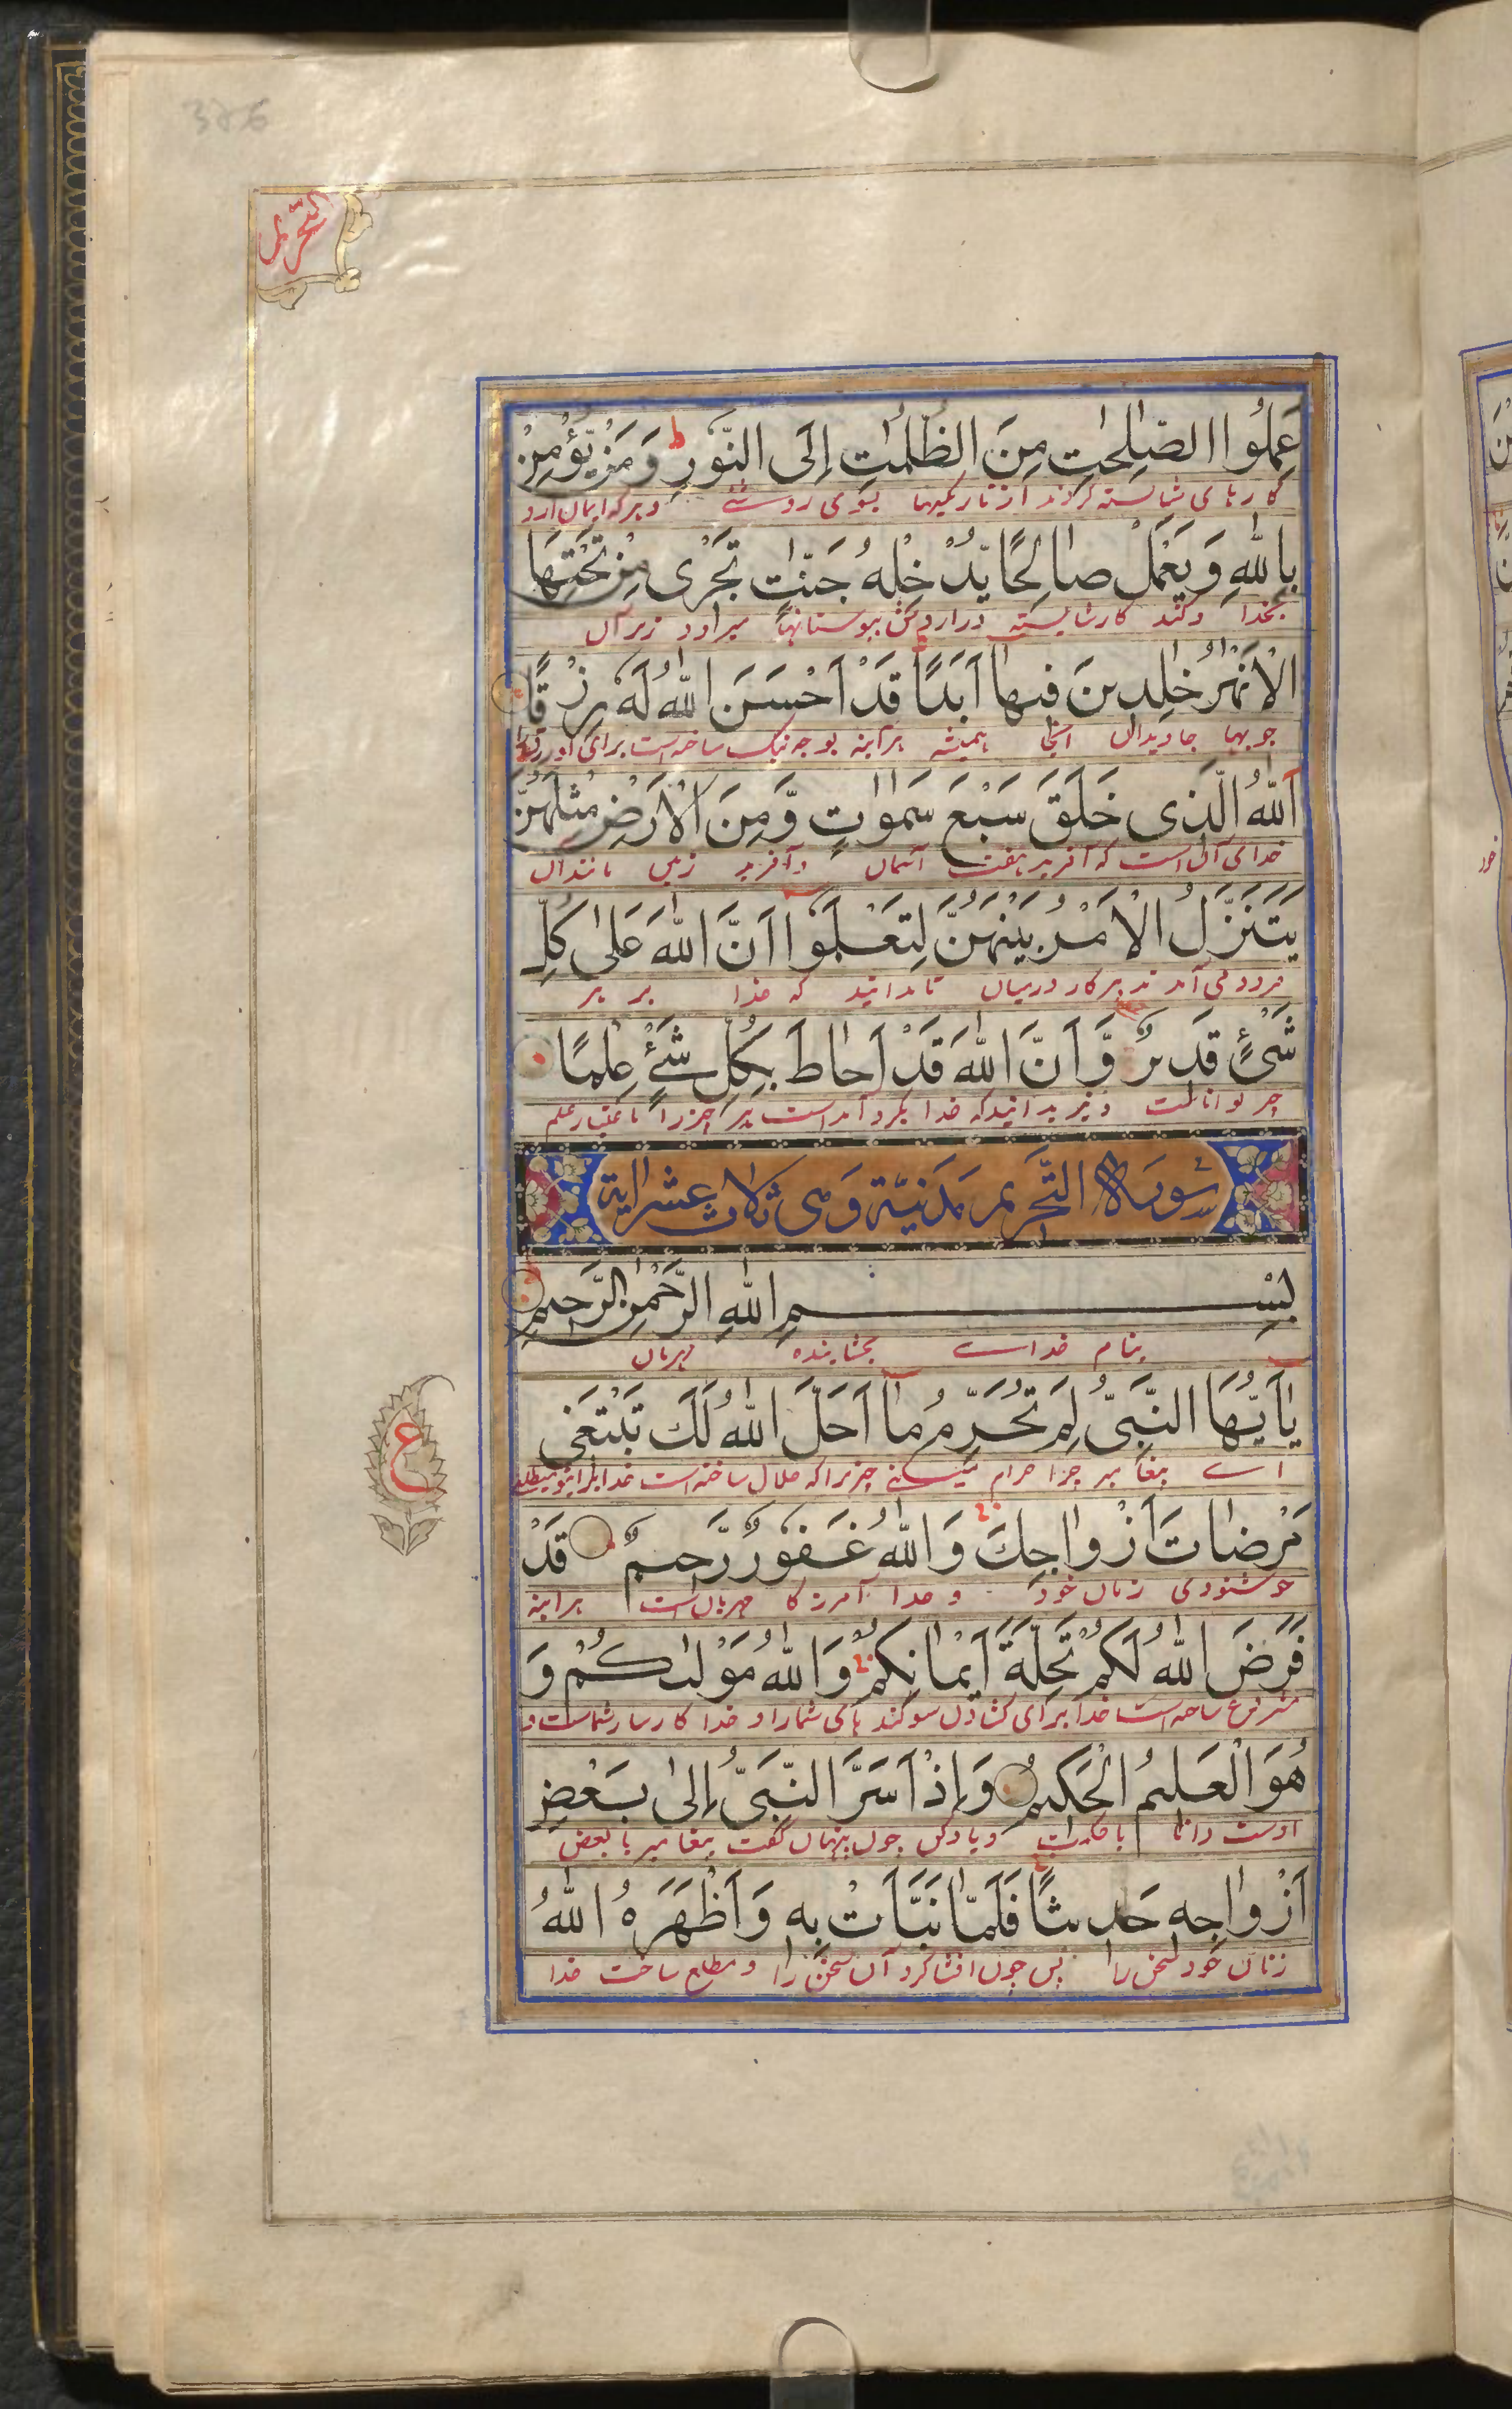 التحريم
عَمِلُوا الصّٰلِحٰتِ مِنَ الظُّلُمٰتِ اِلَى النُّوْرِ ط وَمَنْ يُّؤْمِنْ
کارهای شایسته کردند از تاریکیها بسوی روشنئ و هرکه ایمان ارد
بِاللّٰهِ وَيَعْمَلْ صَالِحًا يُّدْخِلْهُ جَنّٰتٍ تَجْرِى مِنْ تَحْتِهَا
بخدا وکند کار شایسته دراردش ببوستانها میرود زیر آن
الْاَنْهٰرُ خٰلِدِينَ فِيهَا اَبَدًا قَدْ اَحْسَنَ اللّٰهُ لَهُ رِزْقًا
جویها جاویدان انجا همیشه هرآینه بوجه نیک ساخته است برای او رزق را
اَللّٰهُ الَّذِى خَلَقَ سَبْعَ سَمٰوٰتٍ وَّمِنَ الْاَرْضِ مِثْلَهُنَّ
خدای آن است که آفرید هفت آسمان وآفرید زمین مانندان
يَتَنَزَّلُ الْاَمْرُ بَيْنَهُنَّ لِتَعْلَمُوا اَنَّ اللّٰهَ عَلٰى كُلِّ
فرود می آمد تدبیر کار درمیان تا بدانید که خدا بر هر
شَىْءٍ قَدِيرٌ وَّاَنَّ اللّٰهَ قَدْ اَحَاطَ بِكُلِّ شَىْءٍ عِلْمًا
چیز تواناست ونیز بدانید که خدا بگرد آمده است هر چیز را باعتبار علم
سورة التَّحْرِيم مَدَنِيَّة وَهِى ثَلَاث عَشَر اٰية
بِسْمِ اللّٰهِ الرَّحْمٰنِ الرَّحِيمِ
بنام خداے بخشاینده مهربان
يٰاَيُّهَا النَّبِىُّ لِمَ تُحَرِّمُ مَا اَحَلَّ اللّٰهُ لَكَ تَبْتَغِى
اے پیغامبر چرا حرام میکنے چیزیرا که حلال ساخته است خدا برای تو میطلبی
ع
مَرْضَاتَ اَزْوَاجِكَ وَاللّٰهُ غَفُوْرٌ رَّحِيمٌ قَدْ
خوشنودی زنان خود و خدا آمرزگار مهربان است هراینه
فَرَضَ اللّٰهُ لَكُمْ تَحِلَّةَ اَيْمَانِكُمْ وَاللّٰهُ مَوْلٰىكُمْ وَ
مشروع ساخته است خدا برای کشادن سوکند های شمارا و خدا کارساز شماست و
هُوَ الْعَلِيمُ الْحَكِيمُ وَاِذْ اَسَرَّ النَّبِىُّ اِلٰى بَعْضِ
اوست دانا باحکمت ویادکن چون پنهان گفت پیغامبر با بعض
اَزْوَاجِهِ حَدِيثًا فَلَمَّا نَبَّاَتْ بِهِ وَاَظْهَرَهُ اللّٰهُ
زنان خود سخن را پس چون افشا کرد آن سخن را و مطلع ساخت خدا